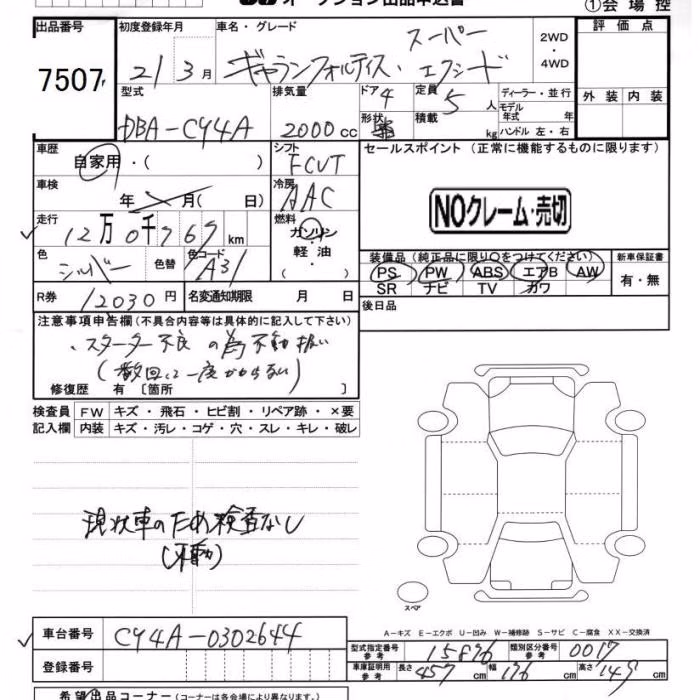 オークション出品申込書
①会場控
出品番号
7507
初度登録年月
21 3月
車名・グレード
スーパー
ギャランフォルティス・エクシード
2WD
・
4WD
評価点
外装 内装
型式
DBA-CY4A
排気量
2000cc
ドア 4
形状
定員 5人
積載 kg
ディーラー・並行
モデル年式 年
ハンドル 左・右
車歴
自家用・( )
シフト
FCVT
セールスポイント (正常に機能するものに限ります)
車検
年 月( 日)
冷房
AAC
NOクレーム・売切
走行
12万0千767km
燃料
ガソリン
軽油
( )
色
シルバー
色替
色コード
A31
装備品(純正品に限り○をつけてください)
新車保証書
PS PW ABS エアB AW
SR ナビ TV カワ
有・無
R券 12030円
名変通知期限 月 日
後日品
注意事項申告欄(不具合内容等は具体的に記入して下さい)
・スターター不良の為不動扱い
(数回に一度かからない)
修復歴 有 [箇所 ]
検査員 FW キズ・飛石・ヒビ割・リペア跡・×要
記入欄 内装 キズ・汚レ・コゲ・穴・スレ・キレ・破レ
現状車のため検査なし
(不動)
スペア
車台番号 CY4A-0302644
A-キズ E-エクボ U-凹み W-補修跡 S-サビ C-腐食 XX-交換済
型式指定番号 参考 15876
類別区分番号 参考 0017
登録番号
車庫証明用 参考 長さ 457cm 幅 176cm 高さ 149cm
希望出品コーナー(コーナーは各会場により異なります)